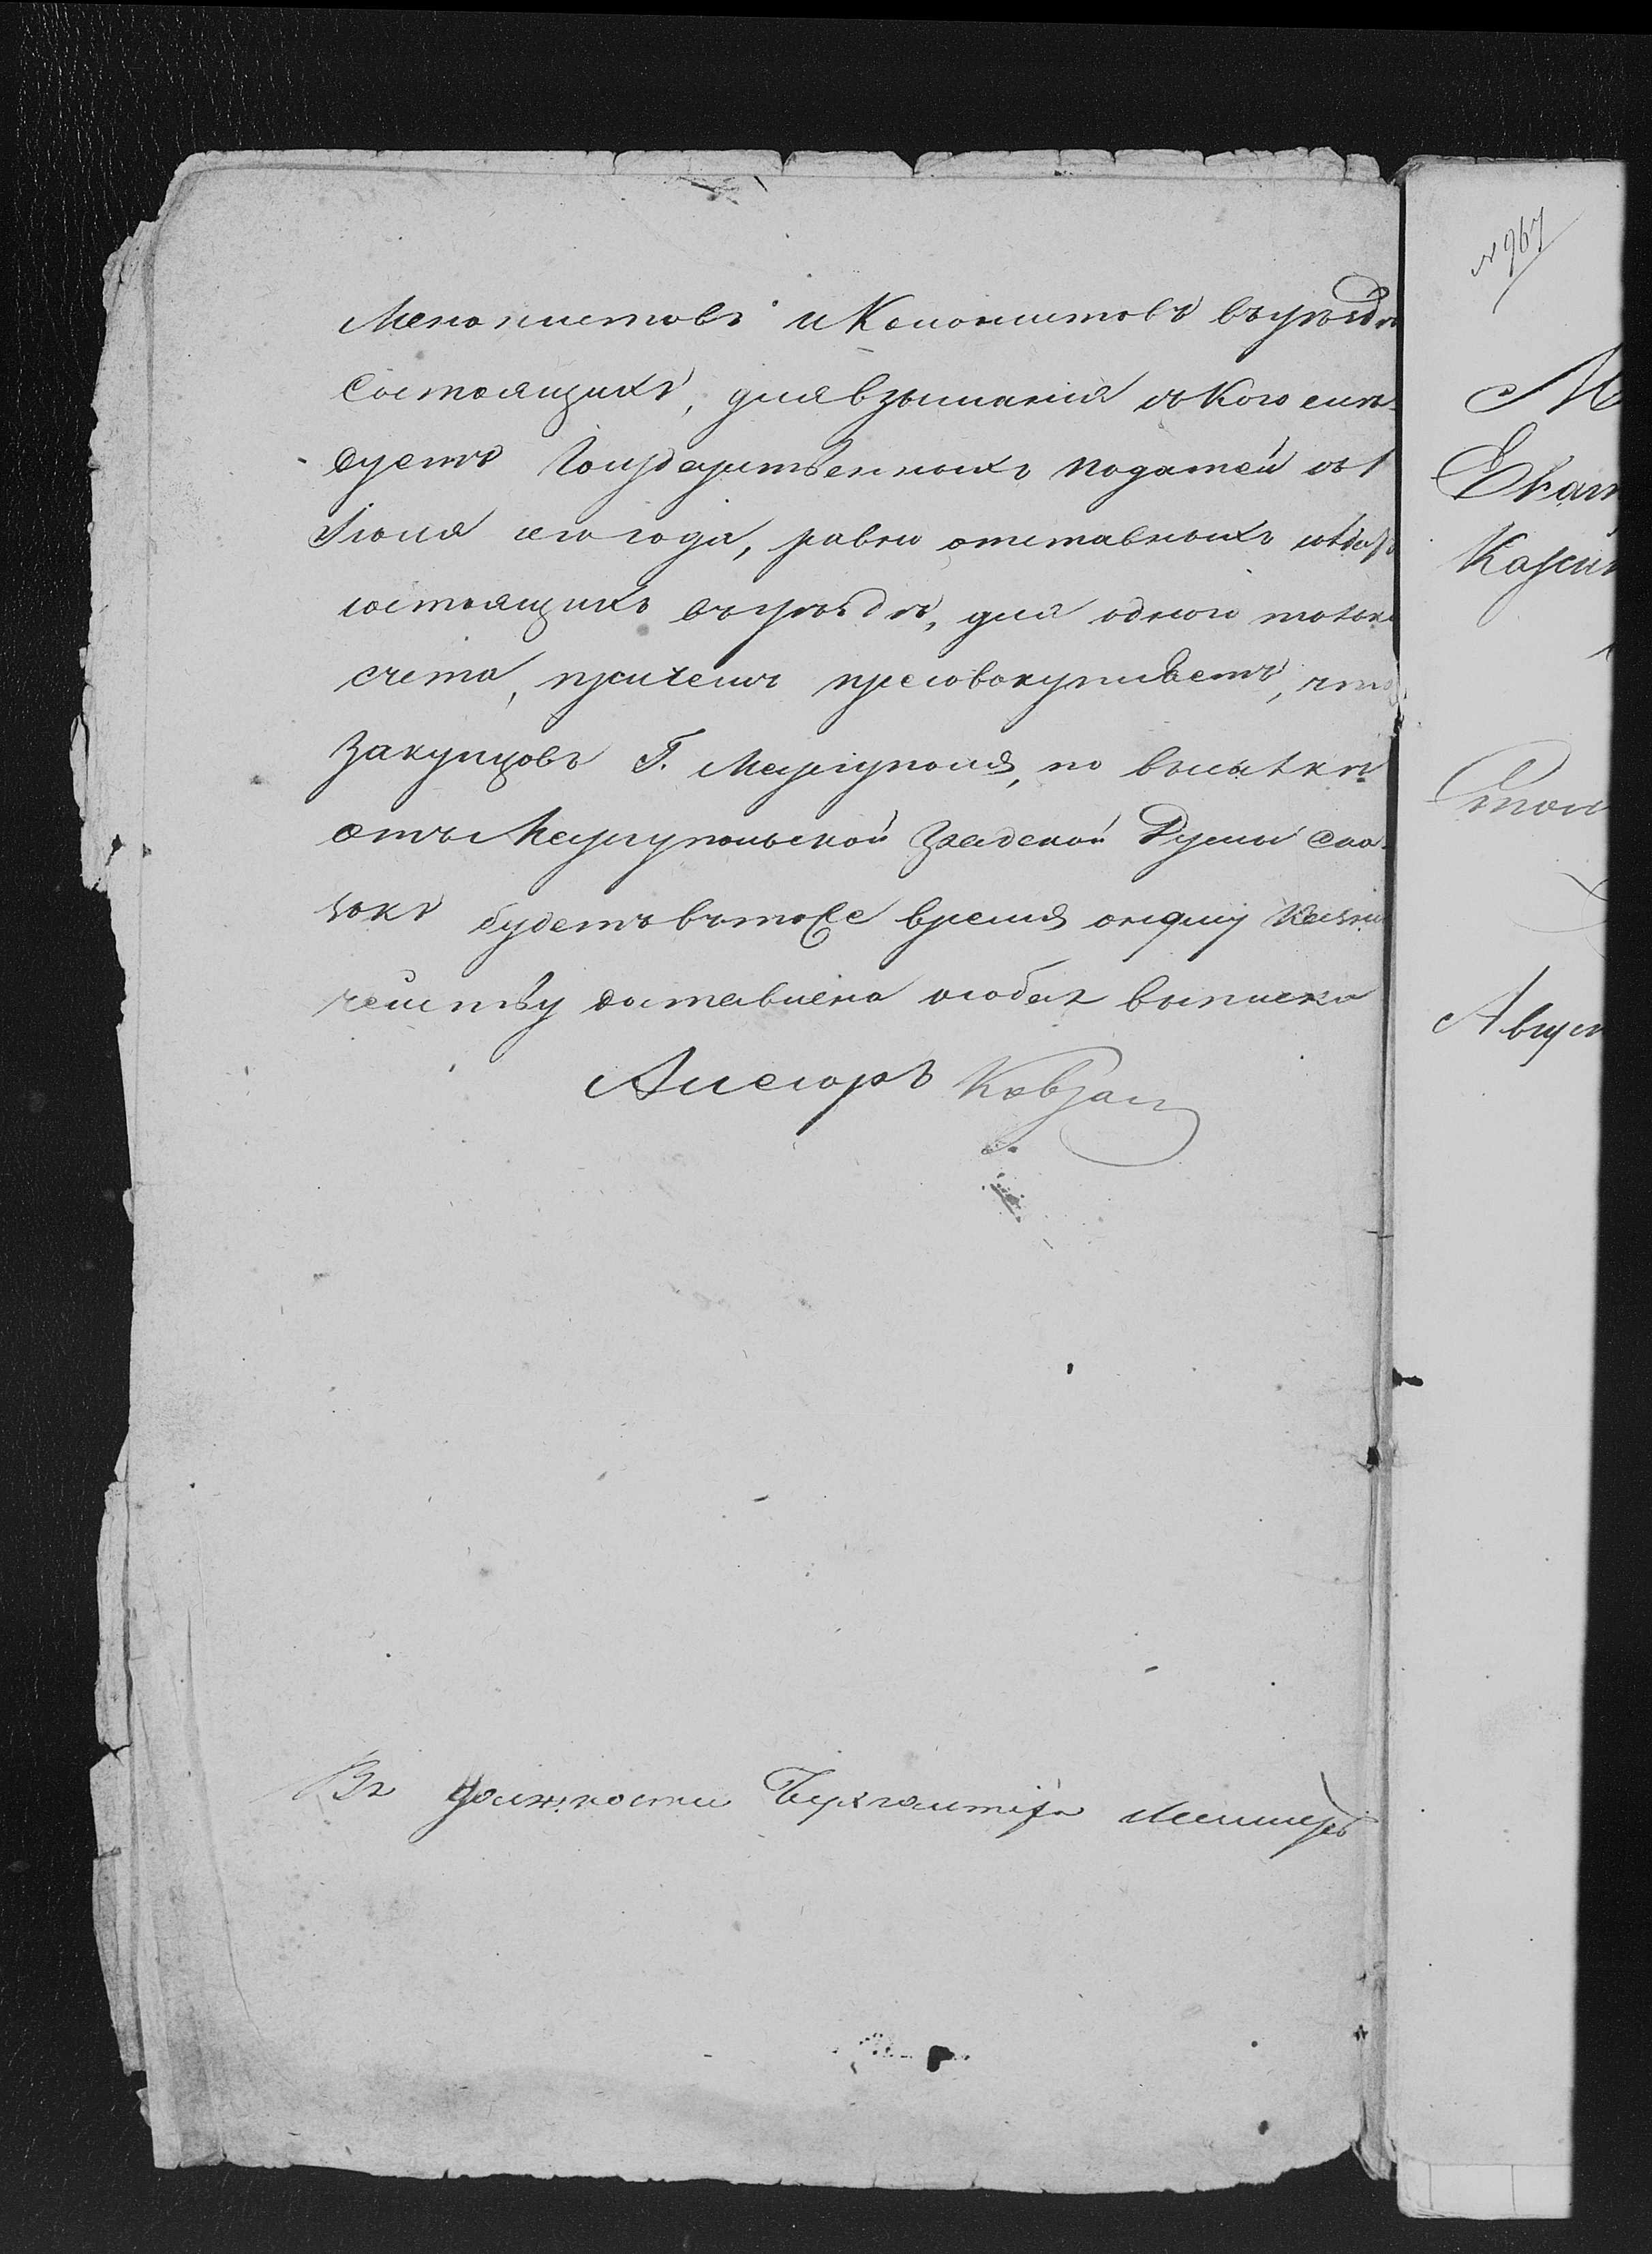 Менонистовъ и Колонистовъ въ уѣздѣ
состоящихъ, для взысканія съ Кого слѣ-
дуетъ Государственныхъ податей съ 1
Іюля сего года, равно отставныхъ
состоящихъ въ уѣздѣ, для одного только
счета, причемъ пресовокупляетъ, что
Закупцовъ Г. Маріуполя, по высылкѣ
отъ Маріупольской Градской Думы ска-
зокъ будетъ въ тоже время оному Казна
чейству доставлена особая выписка
Ассесоръ Ковзан
Въ должности Бухгалтера
№ 967
М
Екат
Казен
Стол
Август